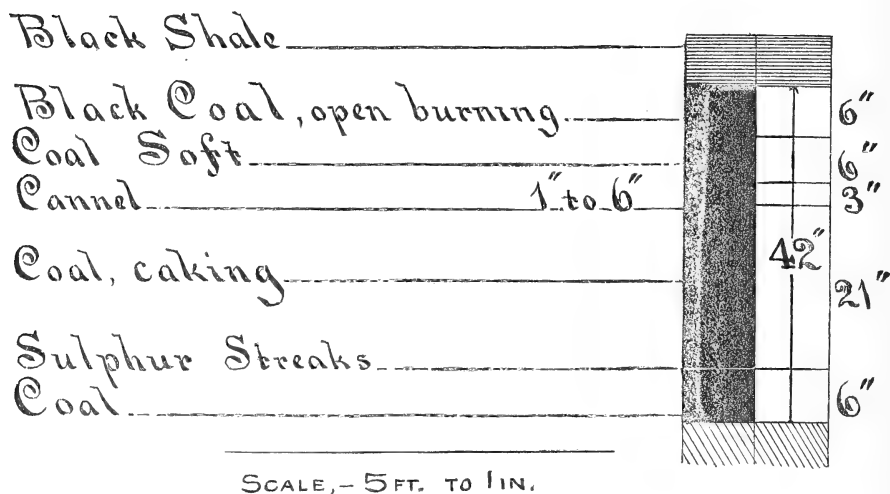 Black Shale
Black Coal, open burning 6"
Coal Soft 6"
Cannel 1" to 6" 3"
42"
Coal, caking 21"
Sulphur Streaks
Coal 6"
SCALE,- 5 FT. TO 1 IN.